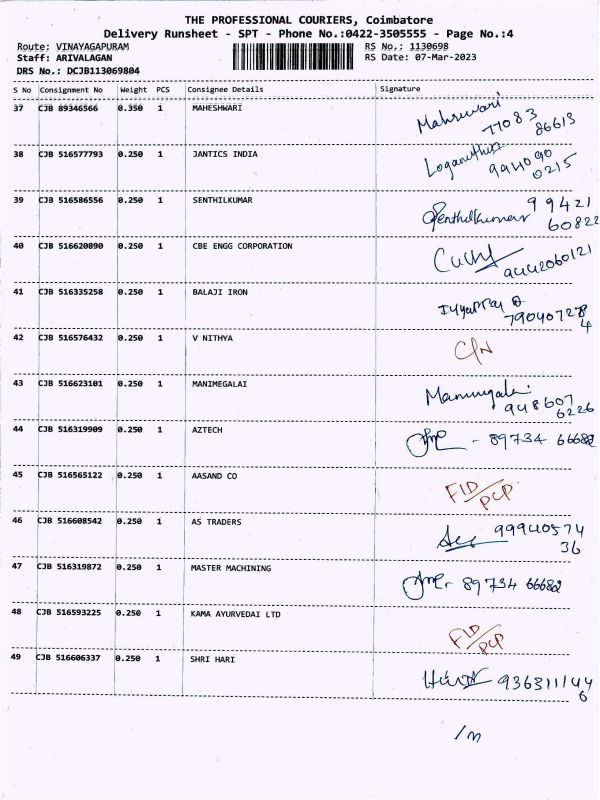 THE PROFESSIONAL COURIERS, Coimbatore
Delivery Runsheet - SPT - Phone No.:0422-3505555 - Page No.:4
Route: VINAYAGAPURAM
RS No.: 1130698
Staff: ARIVALAGAN
RS Date: 07-Mar-2023
DRS No.: DCJB113069804
S No Consignment No Weight PCS Consignee Details Signature
37 CJB 89346566 0.350 1 MAHESHWARI Maheswari
77083
86613
38 CJB 516577793 0.250 1 JANTICS INDIA Loganathan
994090
0215
39 CJB 516586556 0.250 1 SENTHILKUMAR Senthilkumar 99421
60822
40 CJB 516620890 0.250 1 CBE ENGG CORPORATION
9442060121
41 CJB 516335258 0.250 1 BALAJI IRON
790407278
4
42 CJB 516576432 0.250 1 V NITHYA C/N
43 CJB 516623101 0.250 1 MANIMEGALAI
948607
6226
44 CJB 516319909 0.250 1 AZTECH - 89734 66682
45 CJB 516565122 0.250 1 AASAND CO FID/PCP
46 CJB 516608542 0.250 1 AS TRADERS 99940574
36
47 CJB 516319872 0.250 1 MASTER MACHINING 89734 66682
48 CJB 516593225 0.250 1 KAMA AYURVEDAI LTD FID/PCP
49 CJB 516606337 0.250 1 SHRI HARI 936311144
6